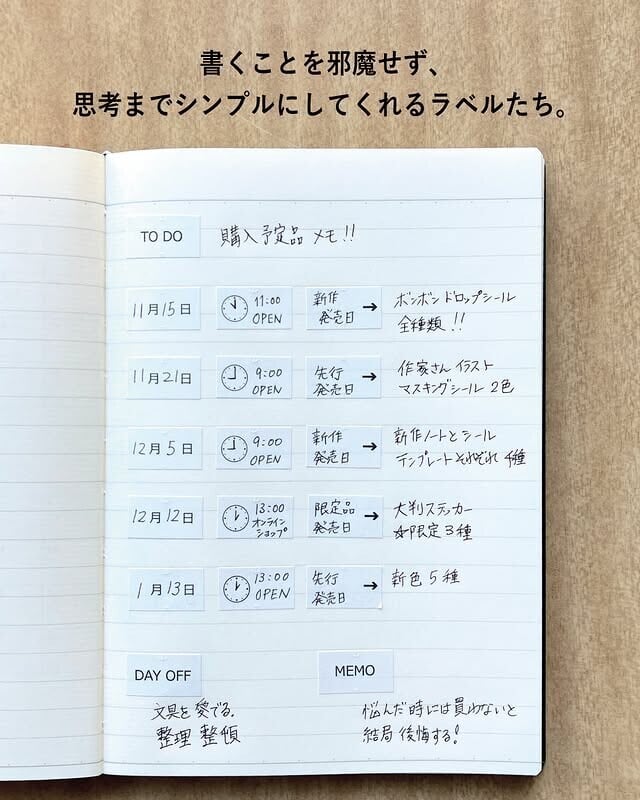 書くことを邪魔せず、
思考までシンプルにしてくれるラベルたち。
TO DO 購入予定品 メモ!!
11月15日 11:00 OPEN 新作発売日 → ボンボンドロップシール
全種類!!
11月21日 9:00 OPEN 先行発売日 → 作家さんイラスト
マスキングシール 2色
12月5日 9:00 OPEN 新作発売日 → 新作ノートとシール
テンプレートそれぞれ 4種
12月12日 13:00 オンラインショップ 限定品発売日 → 大判ステッカー
☆限定3種
1月13日 13:00 OPEN 先行発売日 → 新色5種
DAY OFF
文具を愛でる.
整理 整頓
MEMO
悩んだ時には買わないと
結局後悔する!